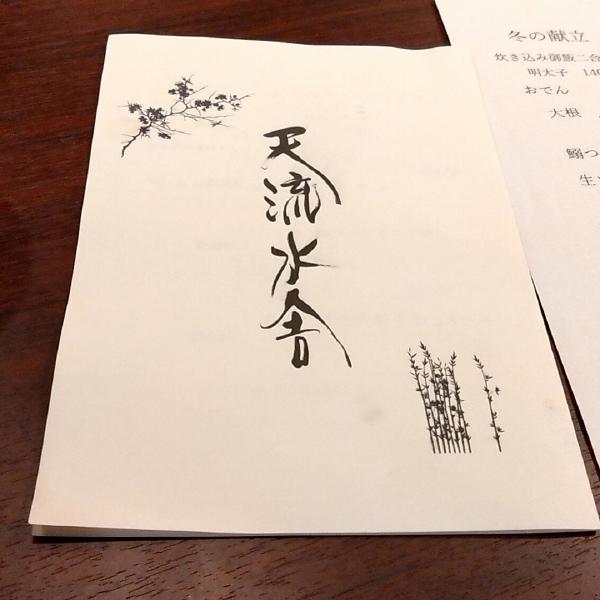 天流水舎
冬の献立
炊き込み御飯二合
明太子 140
おでん
大根
鰯つ
生